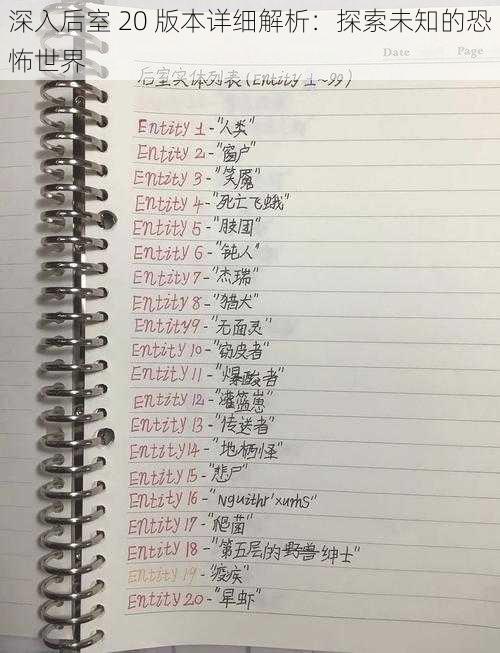 深入后室 20 版本详细解析：探索未知的恐
怖世界
Date
Page
后室实体列表(Entity 1~99)
Entity 1-"人类"
Entity 2-"窗户"
Entity 3-"笑魇"
Entity 4-"死亡飞蛾"
Entity 5-"肢团"
Entity 6-"钝人"
Entity 7-"杰瑞"
Entity 8-"猎犬"
Entity 9-"无面灵"
Entity 10-"窃皮者"
Entity 11-"爆酸者"
Entity 12-"灌篮崽"
Entity 13-"传送者"
Entity 14-"地栖怪"
Entity 15-"悲尸"
Entity 16-"Nguithr'xurhS"
Entity 17-"爬菌"
Entity 18-"第五层的野兽绅士"
Entity 19-"疫疾"
Entity 20-"旱虾"